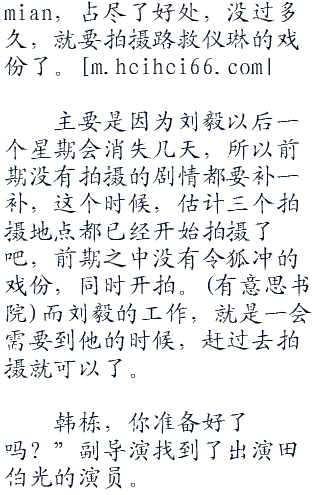 mian，占尽了好处，没过多
久，就要拍摄路救仪琳的戏
份了。[m.hcihci66.com|
主要是因为刘毅以后一
个星期会消失几天，所以前
期没有拍摄的剧情都要补一
补，这个时候，估计三个拍
摄地点都已经开始拍摄了
吧，前期之中没有令狐冲的
戏份，同时开拍。(有意思书
院)而刘毅的工作，就是一会
需要到他的时候，赶过去拍
摄就可以了。
韩栋，你准备好了
吗？”副导演找到了出演田
伯光的演员。